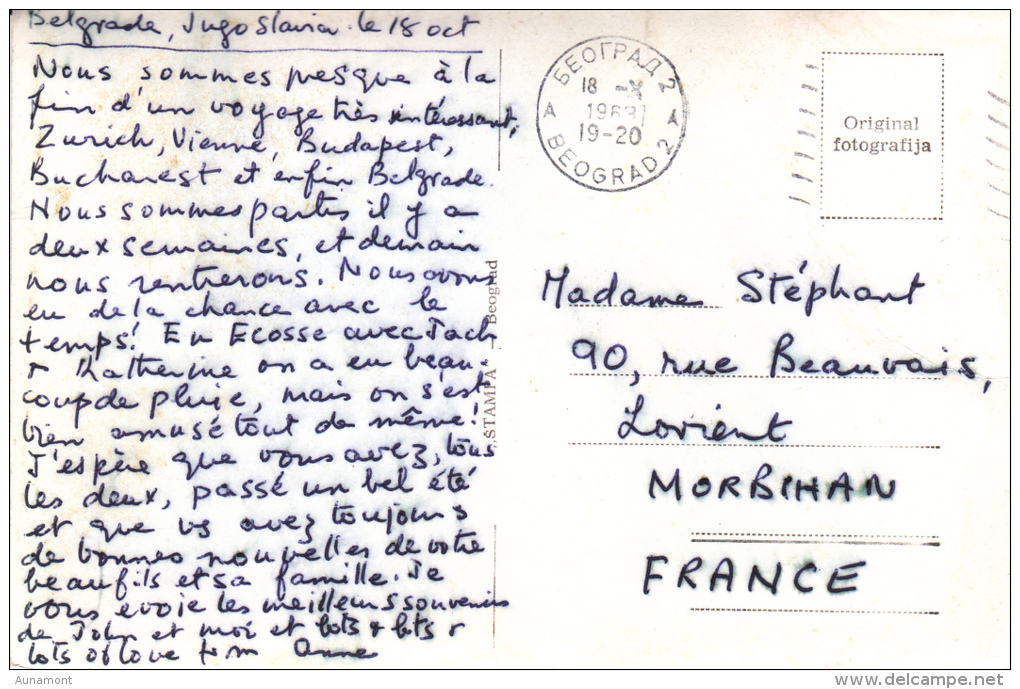 Belgrade, Jugoslavia le 18 oct
Nous sommes presque à la
fin d'un voyage très intéressant,
Zurich, Vienne, Budapest,
Bucharest et enfin Belgrade.
Nous sommes partis il y a
deux semaines, et demain
nous rentrerons. Nous avons
eu de la chance avec le
temps! En Ecosse avec Jach
& Katherine on a eu beau-
coup de pluie, mais on s'est
bien amusé tout de même!
J'espère que vous avez, tous
les deux, passé un bel été
et que vs avez toujours
de bonnes nouvelles de votre
beau fils et sa famille. Je
vous evoie les meilleurs souvenirs
de John et moi et lots & lots &
lots of love from Anne
STAMPA - Beograd
БЕОГРАД 2
18 -X
19-20
A A
BEOGRAD 2
Original
fotografija
Madame Stéphant
90, rue Beauvais,
Lorient
MORBIHAN
FRANCE
Aunamont
delcampe.net